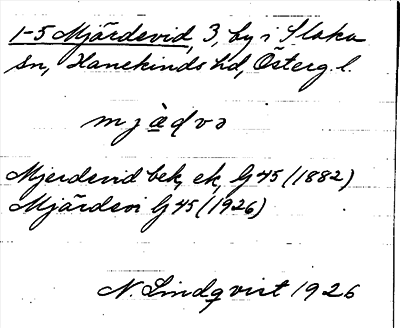 1-5 Mjärdevid, 3, by i Slaka
sn, Hanekinds hd, Österg. l.
mjàdvə
Mjerdevid bek, ek, G 45 (1882)
Mjärdevi G 45 (1926)
N. Lindqvist 1926